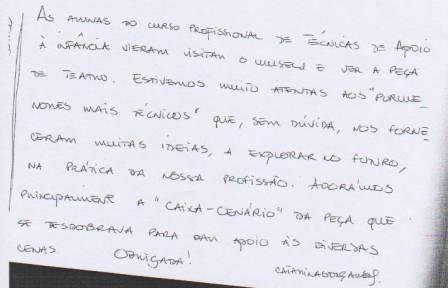 As alunas do curso profissional de Técnicas de Apoio
à infância vieram visitar o museu e ver a peça
de teatro. Estivemos muito atentas aos "porme_
nores mais técnicos" que, sem dúvida, nos forne_
ceram muitas ideias, a explorar no futuro,
na prática da nossa profissão. Adorámos
principalmente a "caixa-cenário" da peça que
se desdobrava para dar apoio às diversas
cenas Obrigada!